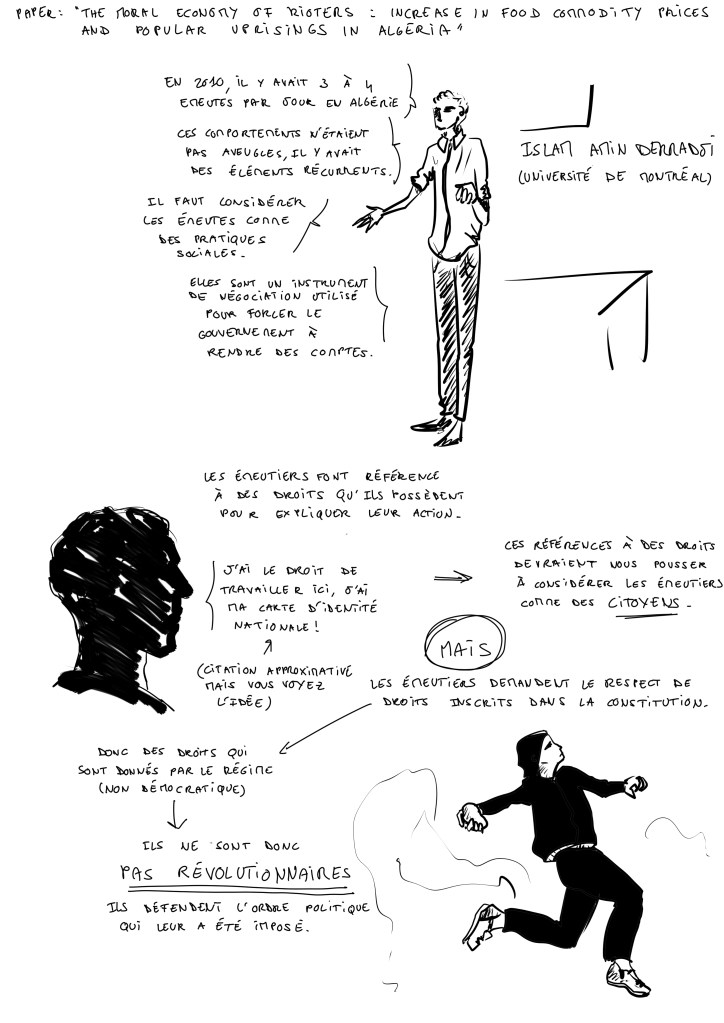 PAPER: "THE MORAL ECONOMY OF RIOTERS : INCREASE IN FOOD COMMODITY PRICES
AND POPULAR UPRISINGS IN ALGERIA"
EN 2010, IL Y AVAIT 3 À 4
EMEUTES PAR JOUR EN ALGÉRIE
CES COMPORTEMENTS N'ÉTAIENT
PAS AVEUGLES, IL Y AVAIT
DES ÉLÉMENTS RÉCURRENTS.
IL FAUT CONSIDÉRER
LES ÉMEUTES COMME
DES PRATIQUES
SOCIALES.
ELLES SONT UN INSTRUMENT
DE NÉGOCIATION UTILISÉ
POUR FORCER LE
GOUVERNEMENT À
RENDRE DES COMPTES.
ISLAM AMIN DERRADJI
(UNIVERSITÉ DE MONTRÉAL)
LES ÉMEUTIERS FONT RÉFÉRENCE
À DES DROITS QU'ILS POSSÈDENT
POUR EXPLIQUER LEUR ACTION.
J'AI LE DROIT DE
TRAVAILLER ICI, J'AI
MA CARTE D'IDENTITÉ
NATIONALE!
(CITATION APPROXIMATIVE
MAIS VOUS VOYEZ
L'IDÉE)
CES RÉFÉRENCES À DES DROITS
DEVRAIENT NOUS POUSSER
À CONSIDÉRER LES ÉMEUTIERS
COMME DES CITOYENS.
MAIS
LES ÉMEUTIERS DEMANDENT LE RESPECT DE
DROITS INSCRITS DANS LA CONSTITUTION.
DONC DES DROITS QUI
SONT DONNÉS PAR LE RÉGIME
(NON DÉMOCRATIQUE)
ILS NE SONT DONC
PAS RÉVOLUTIONNAIRES
ILS DÉFENDENT L'ORDRE POLITIQUE
QUI LEUR A ÉTÉ IMPOSÉ.